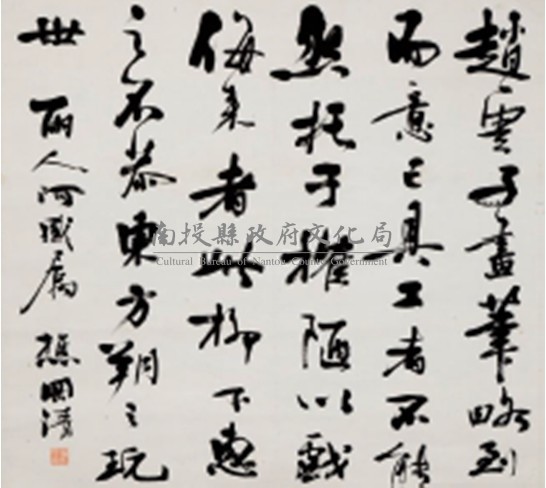 趙雲子畫筆略到
而意已具工者不能
然托于椎陋以戲
侮來者此柳下惠
之不恭東方朔之玩
世 丽人
南投縣政府文化局
Cultural Bureau of Nantou County Government